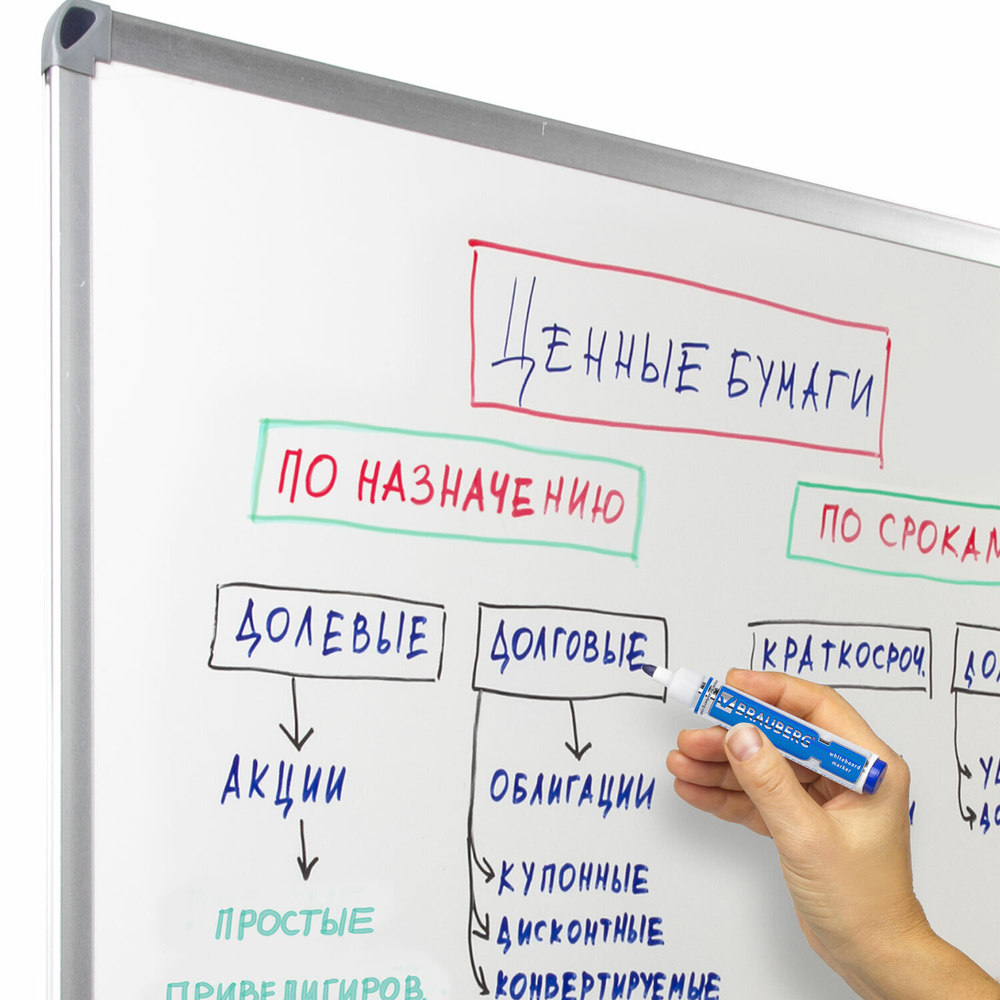 ЦЕННЫЕ БУМАГИ
ПО НАЗНАЧЕНИЮ
ПО СРОКАМ
ДОЛЕВЫЕ
ДОЛГОВЫЕ
КРАТКОСРОЧ.
АКЦИИ
ОБЛИГАЦИИ
BRAUBERG
whiteboard
marker
КУПОННЫЕ
ПРОСТЫЕ
ДИСКОНТНЫЕ
ПРИВЕЛИГИРОВ.
КОНВЕРТИРУЕМЫЕ